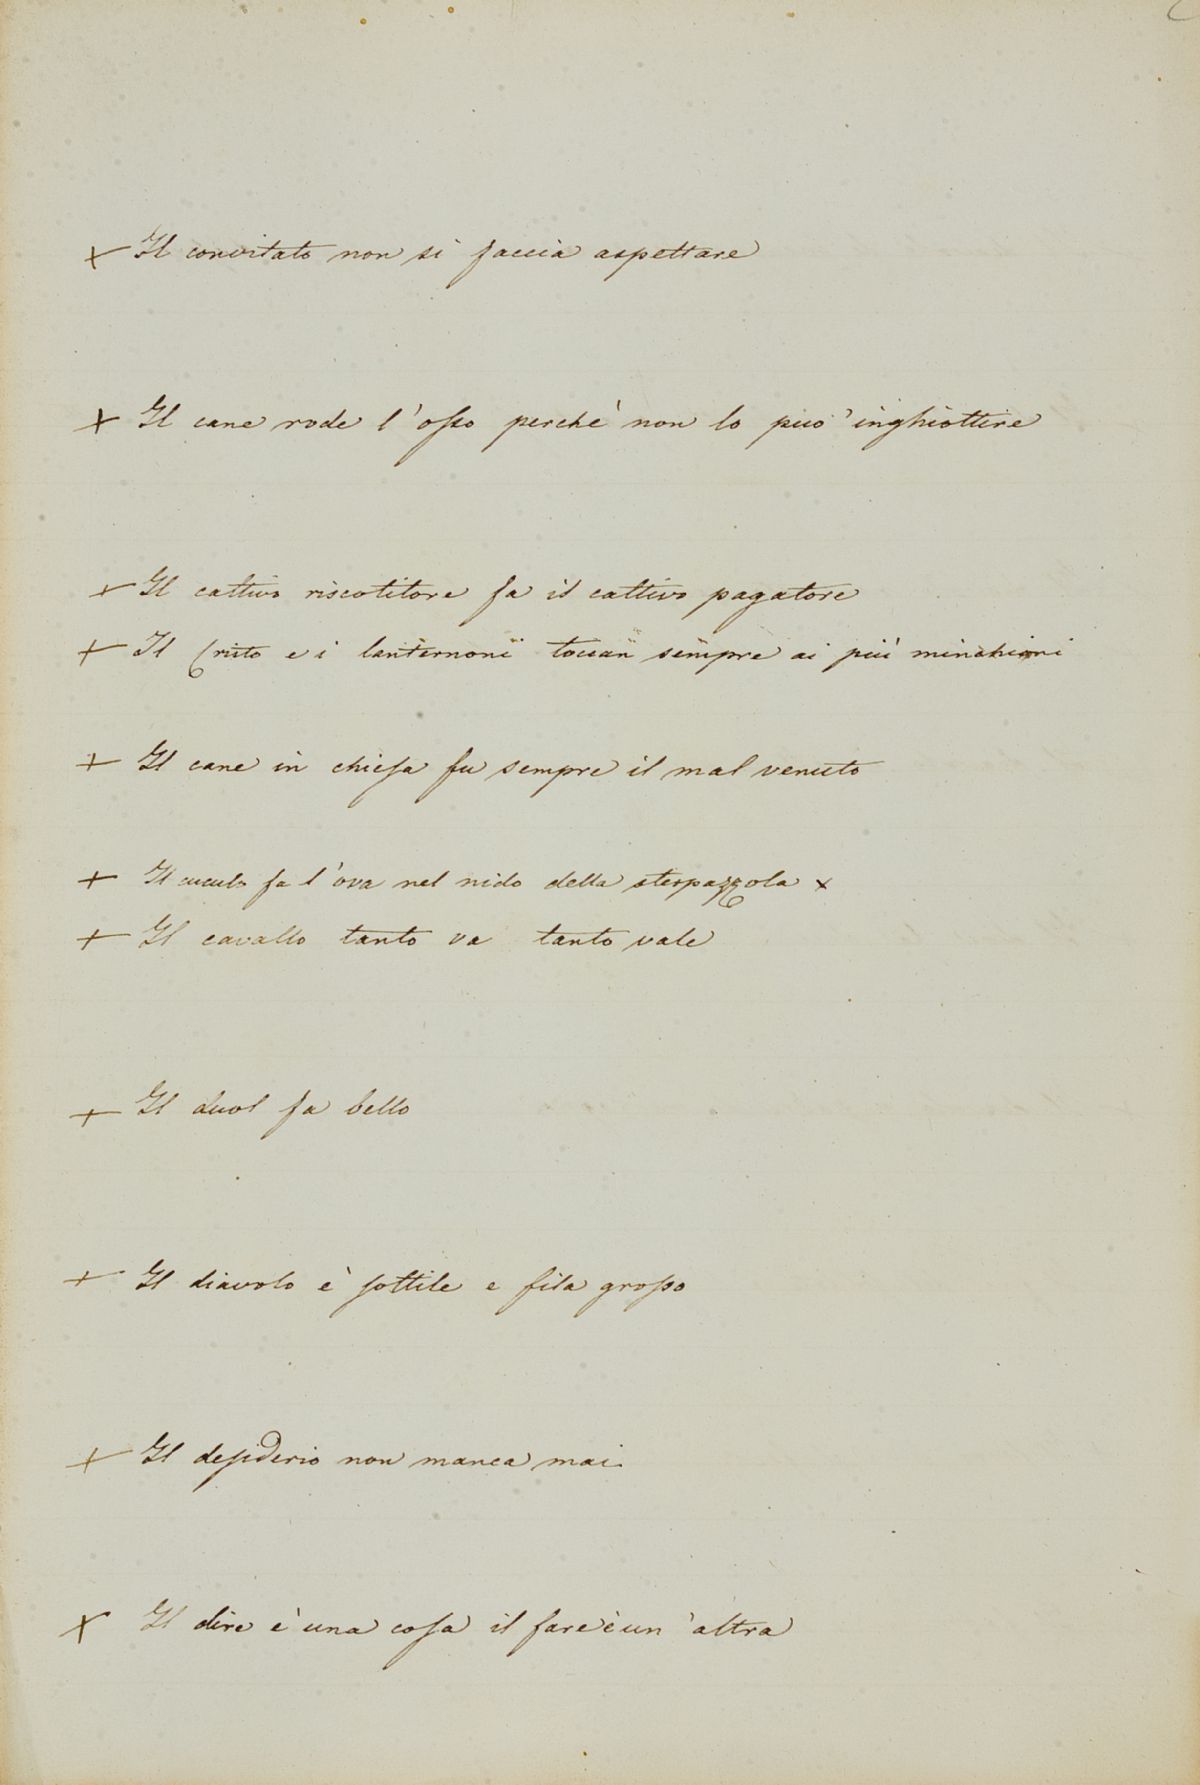 + Il convitato non si faccia aspettare
+ Il cane rode l'osso perchè non lo può inghiottire
+ Il cattivo riscotitore fa il cattivo pagatore
+ Il Cristo e i lanternoni toccan sempre ai più minchioni
+ Il cane in chiesa fu sempre il mal venuto
+ Il cuculo fa l'ova nel nido della sterpazzola x
+ Il cavallo tanto va tanto vale
+ Il duol fa bello
+ Il diavolo è sottile e fila grosso
+ Il desiderio non manca mai.
+ Il dire è una cosa il fare è un'altra